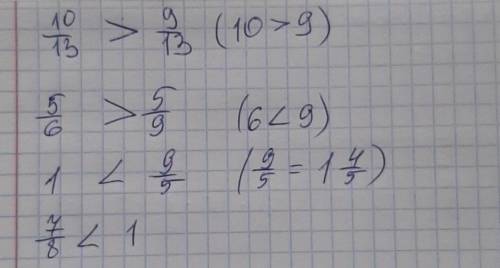 10/13 > 9/13 (10 > 9)
5/6 > 5/9 (6 < 9)
1 < 9/5 (9/5 = 1 4/5)
7/8 < 1